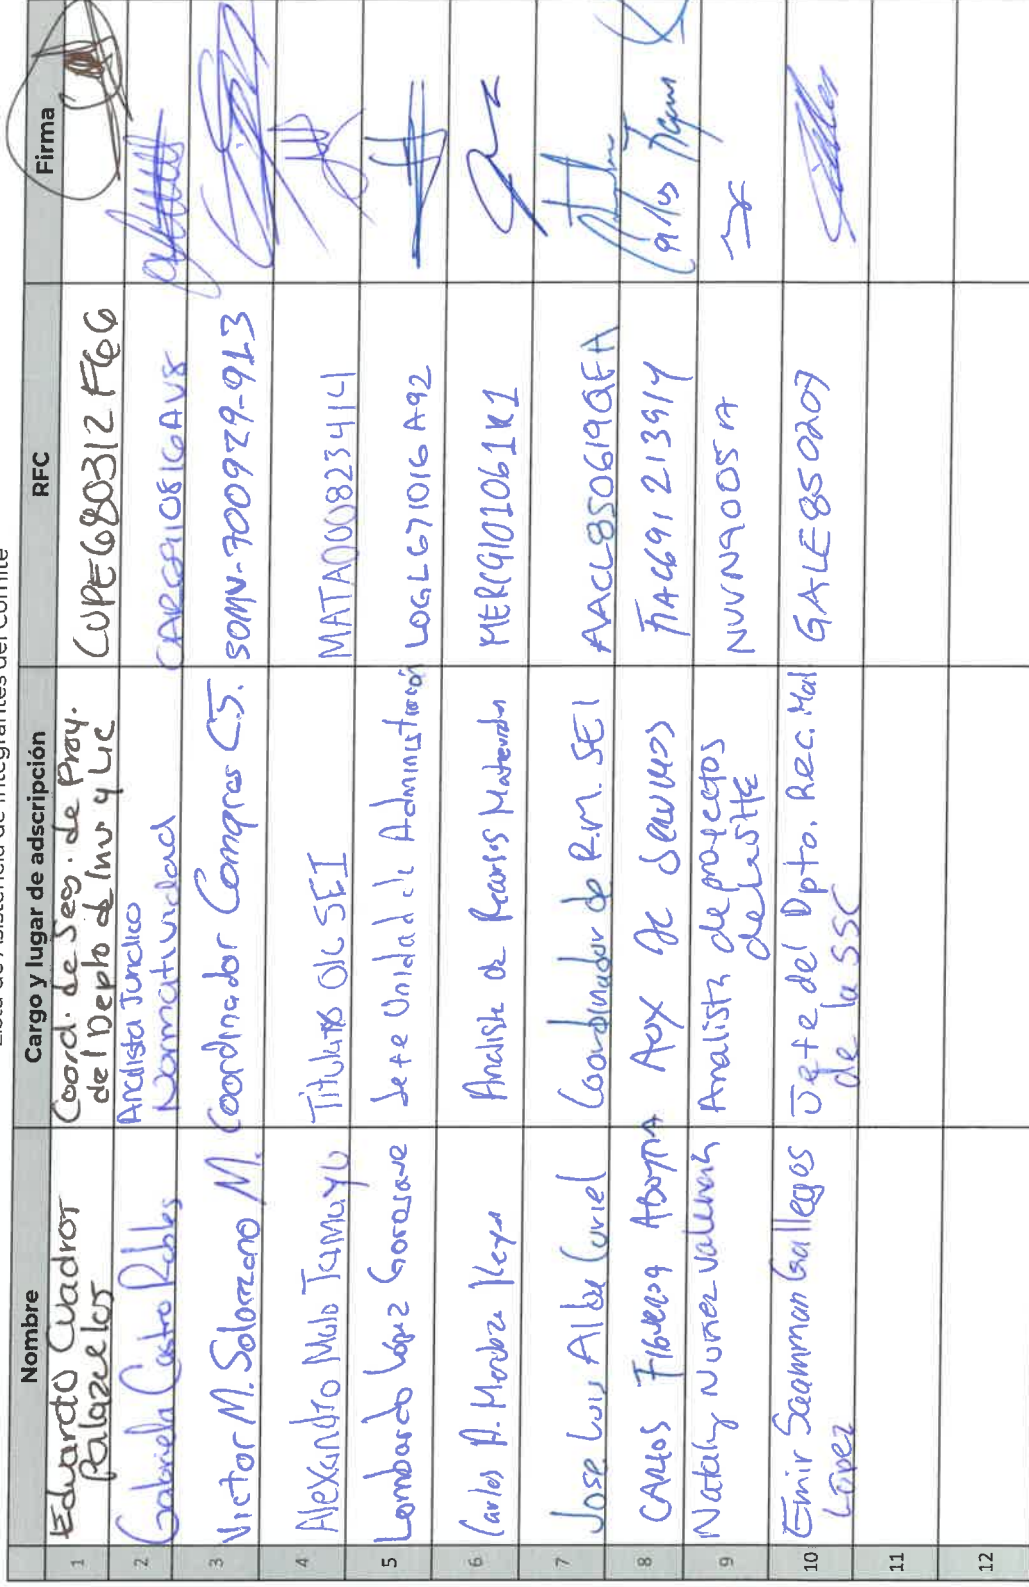 Lista de Asistencia de Integrantes del Comité
Nombre Cargo y lugar de adscripción RFC Firma
1 Eduardo Cuadros Palazuelos Coord. de Seg. de Proy. CUPE680312F66
del Depto de Inv. y Lic
2 Gabriela Castro Robles Analista Jurídico CARG9110816AV8
Normatividad
3 Victor M. Solorzano M. Coordinador Compras C.S. SOMV-700929-913
4 Alexandro Malo Tamayo Titular OIC SEI MATA0008234141
5 Lombardo López Gorosave Jefe Unidad de Administración LOGL671016A92
6 Carlos A. Mendoza Reyes Analista de Recursos Materiales MERC9101061K1
7 Jose Luis Alba Curiel Coordinador de R.M. SEI AACL850619QEA
8 CARLOS FIGUEROA Aux de Servicios FIAC691213914
9 Nataly Nuñez Valenzuela Analista de proyectos NUVN9005
10 Emir Saamman Gallegos Jefe del Dpto. Rec. Mat GALE850209
López de la SSC
11
12